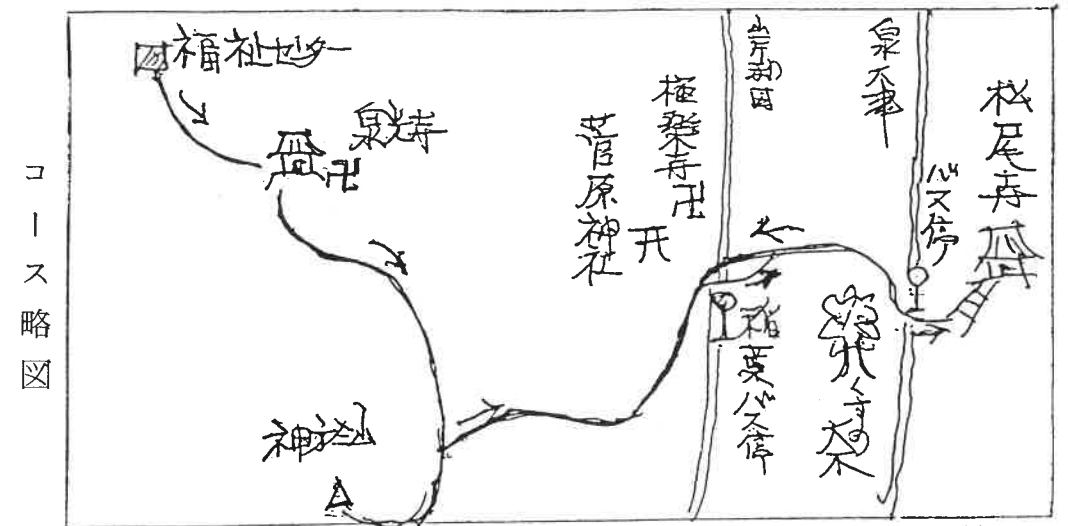 コース略図
福祉センター
泉光寺
卍
神於山
菅原神社
極楽寺
卍
岸和田
稲葉バス停
泉大津
バス停
くすの大木
松尾寺